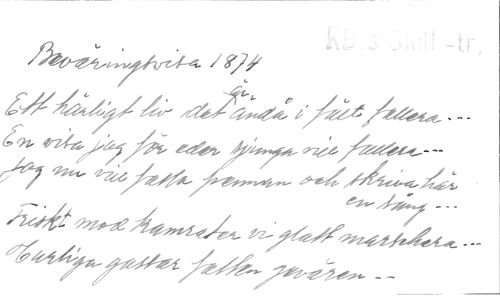 KB:s Skill-tr.
Beväringsvisa 1874
är
Ett härligt liv det ändå i fält fallera ---
En visa jag för eder sjunga vill fallera ---
Jag nu vill fatta pennan och skriva här
en sång ---
Friskt mod kamrater vi glatt marschera ---
Hurtiga gossar fatten gevären --